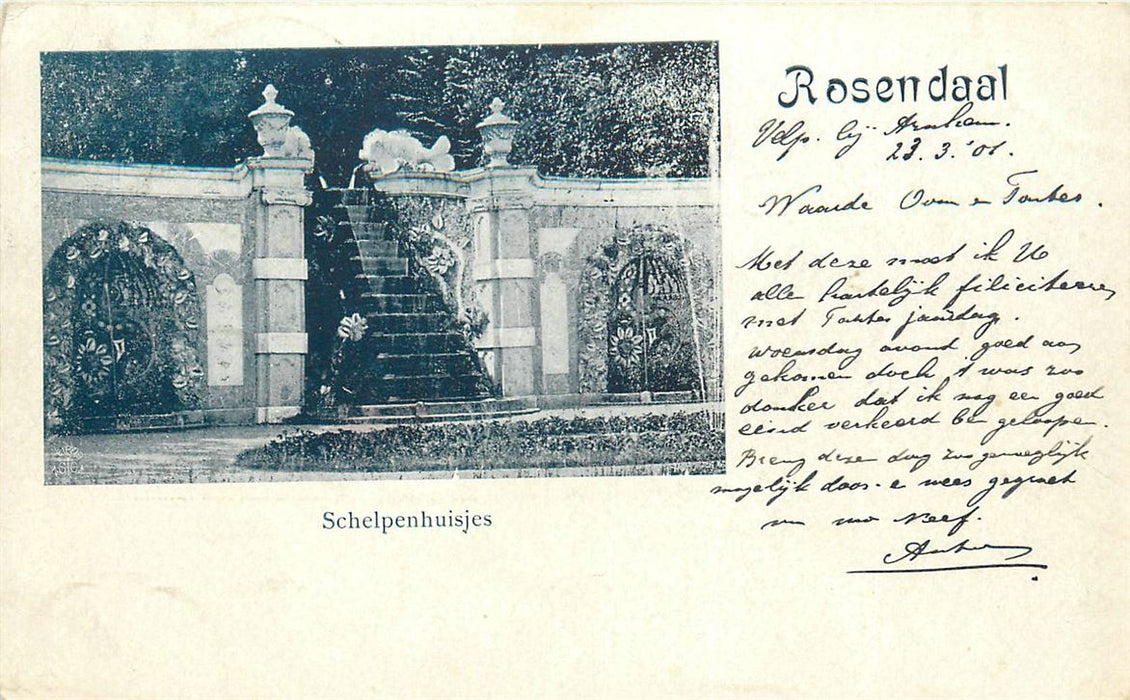 Rosendaal
Velp. bij Arnhem.
23.3.'01.
Waarde Oom en Tantes.
Met deze moet ik U
alle hartelijk filiciteeren
met Tantes jaardag.
woensdag avond goed aan
gekomen doch 't was zoo
donker dat ik nog een goed
eind verkeerd ben geloopen.
Breng deze dag zoo genoeglijk
mogelijk door. en wees gegroet
van uw Neef.
Schelpenhuisjes